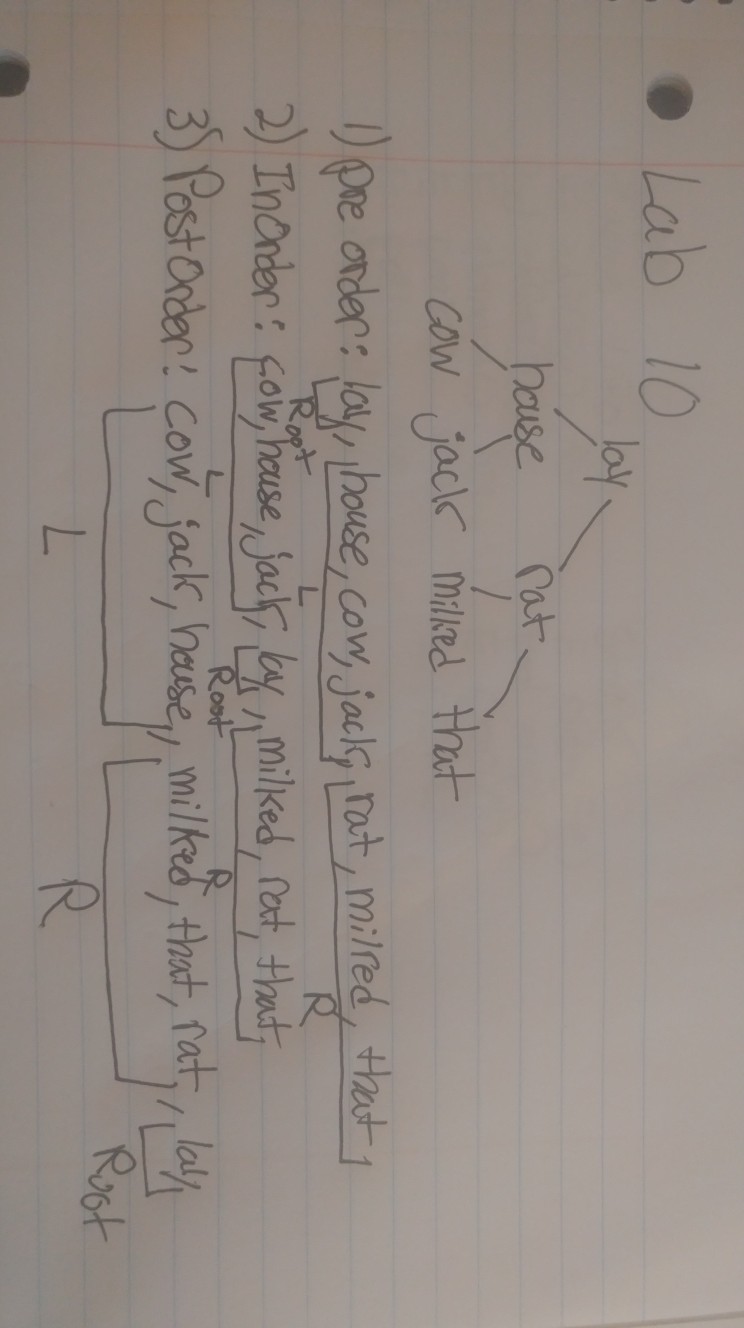 Lab 10
lay
house rat
cow jack milked that
1) pre order: lay, house, cow, jack, rat, milked, that
Root L R
2) InOrder: cow, house, jack, lay, milked, rat, that
L Root R
3) PostOrder: cow, jack, house, milked, that, rat, lay
Root
L R